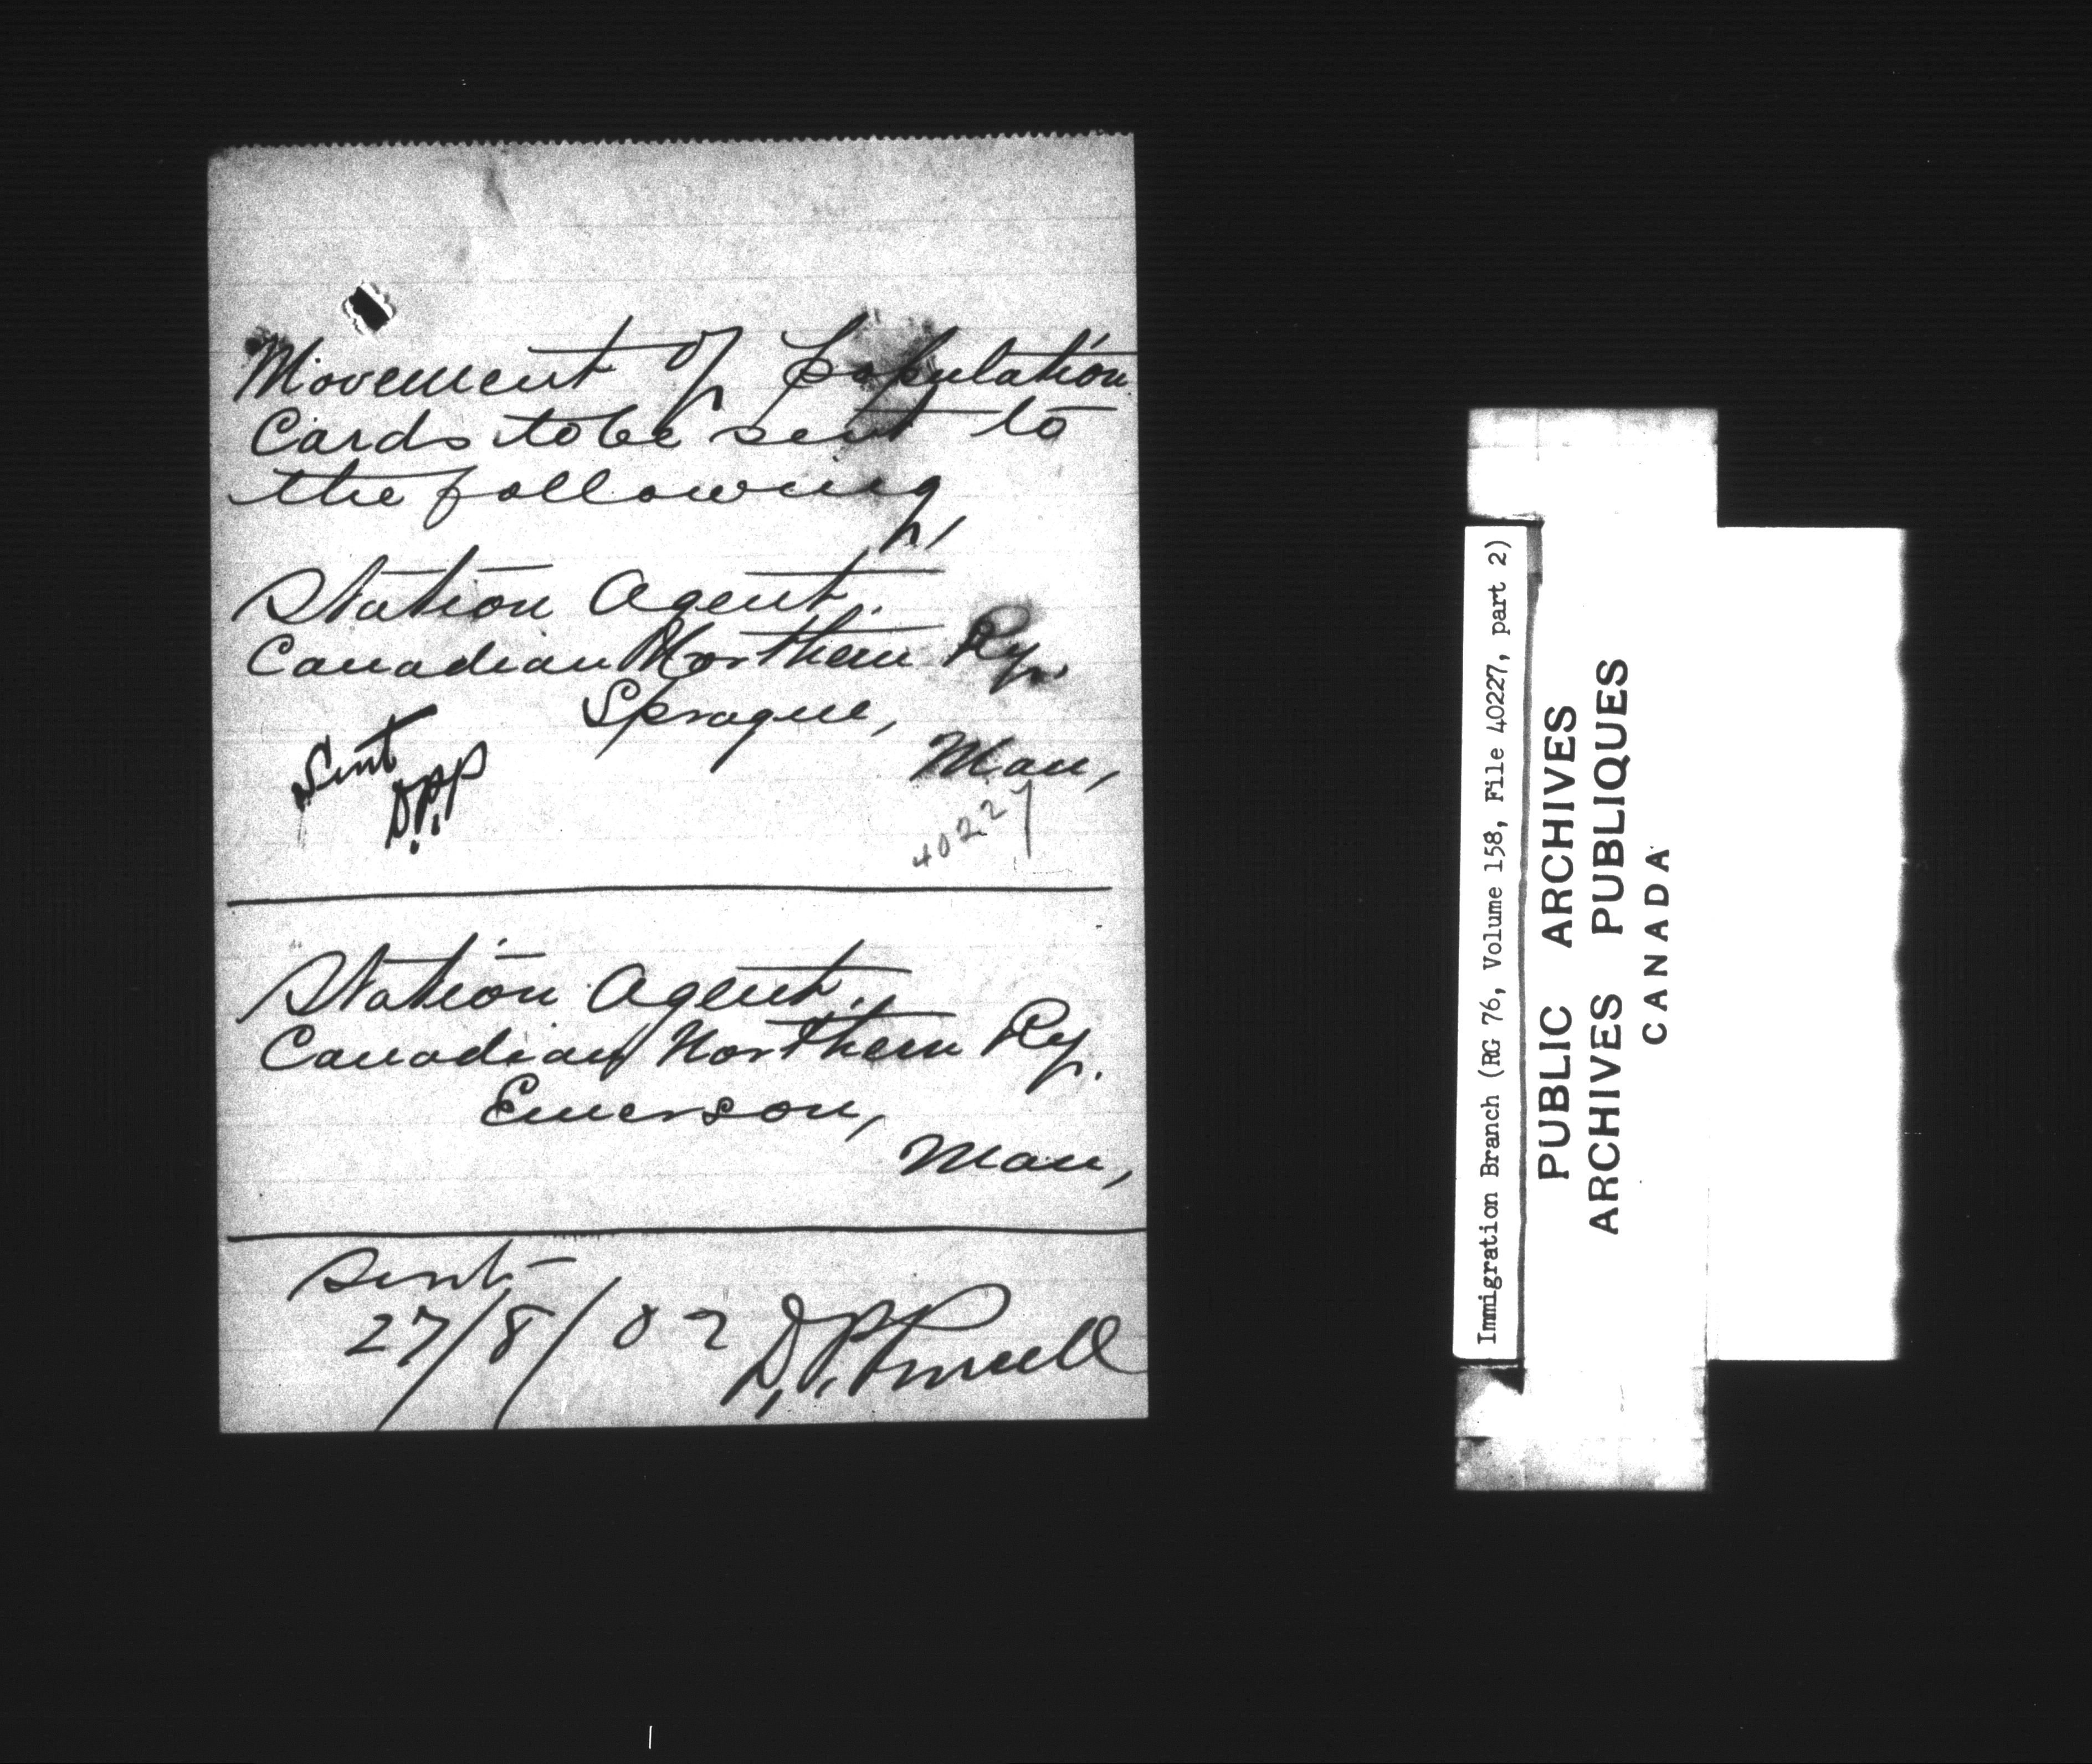 Movement of Population
Cards to be sent to
the following,
Station Agent.
Canadian Northern Ry.
Sprague,
Man,
Sent
D.P.P
40227
Station Agent.
Canadian Northern Ry.
Emerson,
Man,
Sent
27/8/02 D.P.
Immigration Branch (RG 76, Volume 158, File 40227, part 2)
PUBLIC ARCHIVES
ARCHIVES PUBLIQUES
CANADA